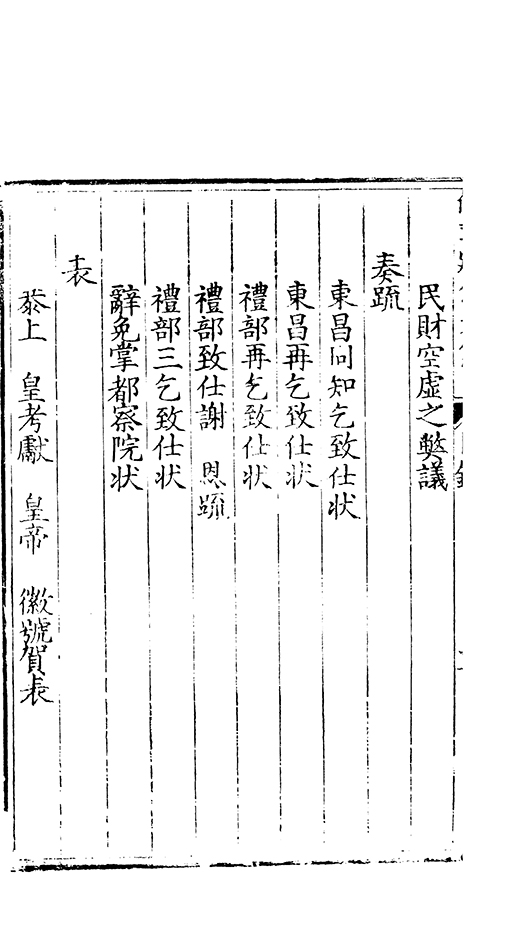 民財空虛之弊議
奏疏
東昌同知乞致仕狀
東昌再乞致仕狀
禮部再乞致仕狀
禮部致仕謝　恩疏
禮部三乞致仕狀
辭免掌都察院狀
表
恭上　皇考獻　皇帝　徽號賀表